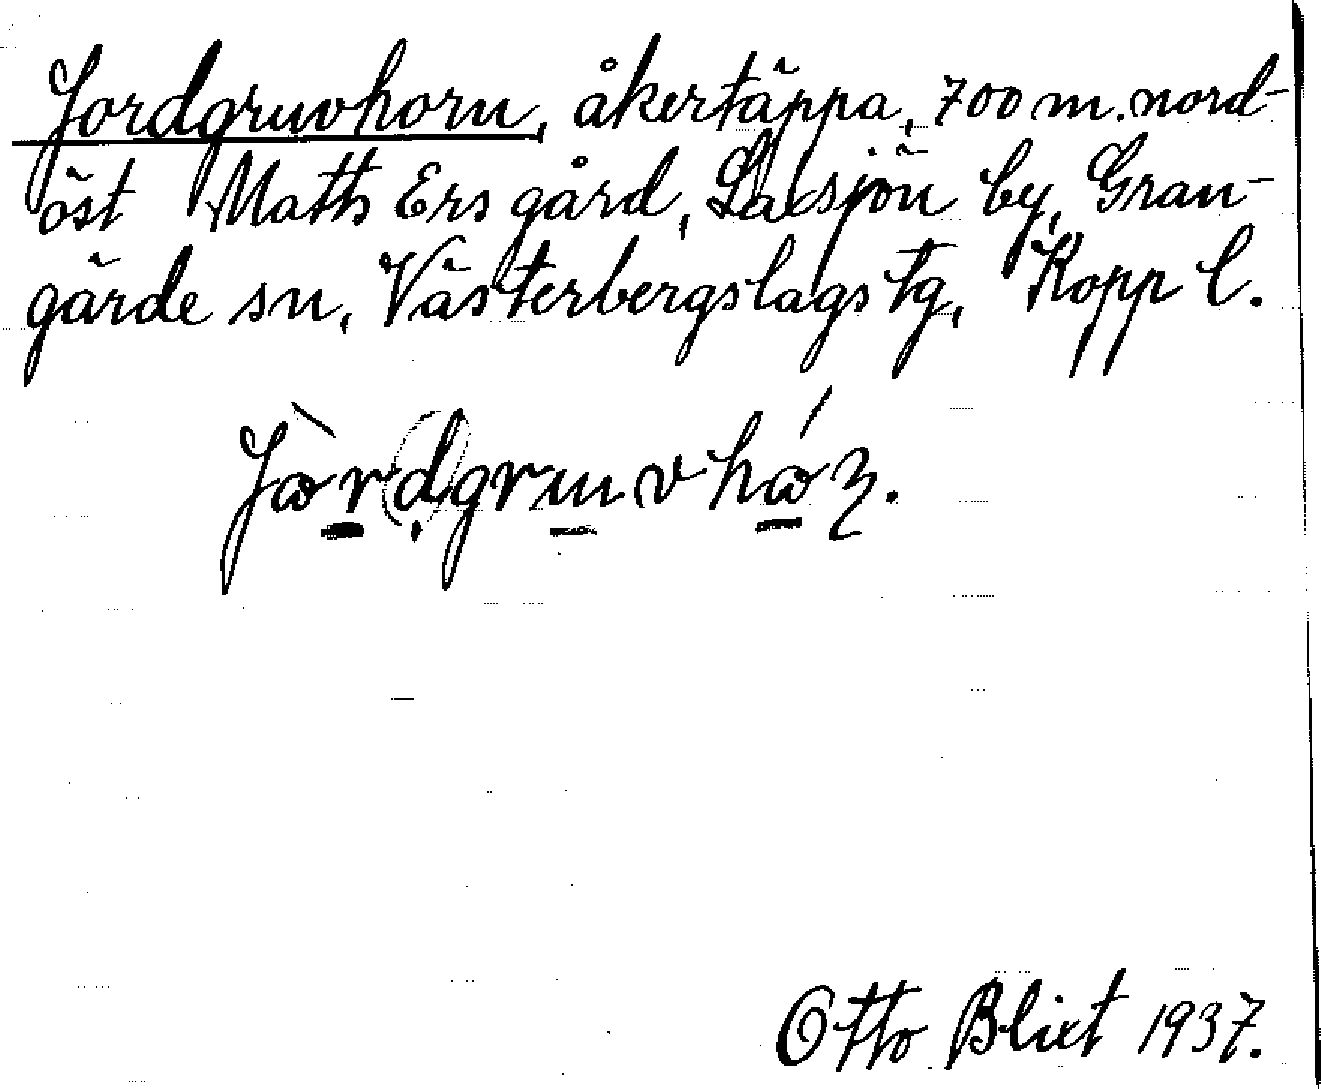 Jordgruvhorn, åkertäppa, 700 m. nord-
öst Matts Ers gård, Laxsjön by, Gran-
gärde sn, Västerbergslags tg, Kopp l.
Otto Blixt 1937.